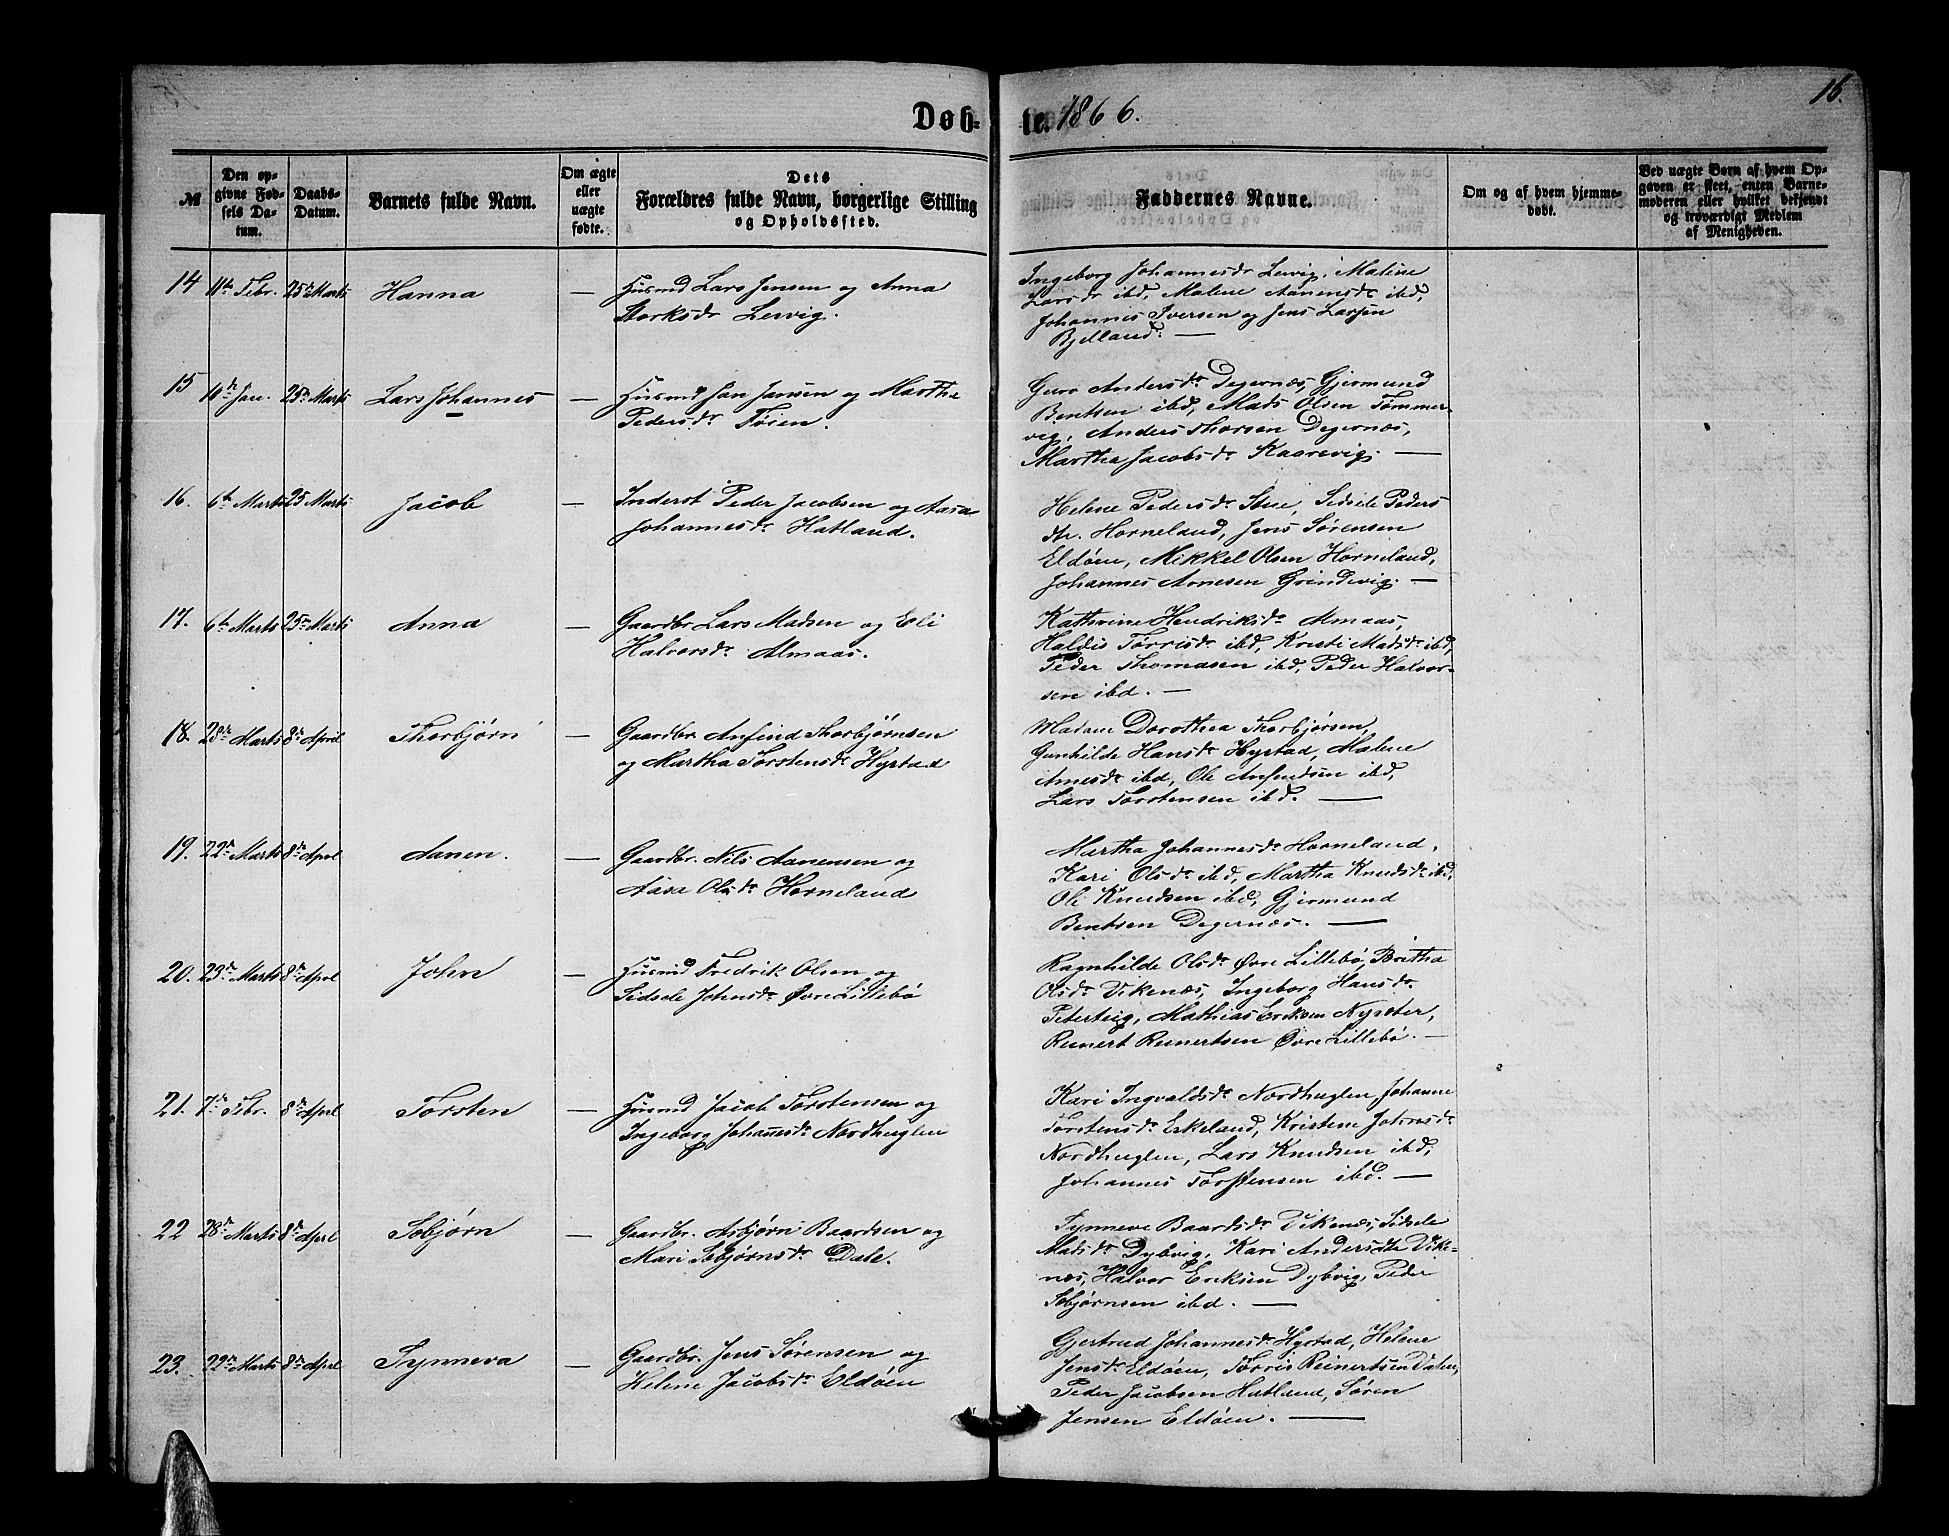 Døb-
te. 1866.
16.
№
Den op-
givne Fød-
sels Da-
tum.
Daabs-
Datum.
Barnets fulde Navn.
Om ægte
eller
uægte
fødte.
Dets
Forældres fulde Navn, borgerlige Stilling
og Opholdssted.
Faddernes Navne.
Om og af hvem hjemme-
døbt.
Ved uægte Børn af hvem Op-
gaven er skeet, enten Barne-
moderen eller hvilket bekjendt
og troværdigt Medlem
af Menigheden.
14 11te Febr. 25de Marts Hanna — Husmd Lars Jensen og Anna
Storksdr Lervig.
Ingeborg Johannesdr Lervig, Malene
Larsdr ibd, Malene Aanensdr ibd,
Johannes Iversen og Jens Larsen
Bjelland. —
15 10de Jan. 25de Marts Lars Johannes — Husmd Jan Jansen og Martha
Pedersdr Tøien.
Guro Andersdr Degernæs, Gjermund
Bentsen ibd, Mads Olsen Tømmer-
vig, Anders Thorsen Degernæs,
Martha Jacobsdr Kaarevig. —
16. 6te Marts 25 Marts Jacob — Inderst Peder Jacobsen og Aasa
Johannesdr Hatland.
Helene Pedersdr Stue, Sidsele Peders
dr. Horneland, Jens Sørensen
Eldøen, Mikkel Olsen Horneland,
Johannes Arnesen Grindevig. —
17. 6te Marts 25de Marts Anna — Gaardbr Lars Madsen og Eli
Halvorsdr Almaas.
Kathrine Hendriksdr Almaas,
Haldis Tørrisdr ibd, Kristi Madsdr ibd,
Peder Thomasen ibd, Peder Halvor-
sen ibd. —
18. 28de Marts 8de April Thorbjørn — Gaardbr Anfind Thorbjørnsen
og Martha Torstensdr Hystad
Madame Dorothea Thorbjørsen,
Gunhilde Hansdr Hystad, Malene
Arnesdr ibd, Ole Anfindsen ibd,
Lars Torstensen ibd. —
19. 22de Marts 8de Aprl Aanen. — Gaardbr. Nils Aanensen og
Aasa Olsdr Horneland
Martha Johannesdr Horneland,
Kari Olsdr ibd, Martha Knudsdr ibd,
Ole Knudsen ibd, Gjermund
Bentsen Degernæs. —
20. 23de Marts 8de Aprl John — Husmd Fredrik Olsen og
Sidsele Johnsdr Øvre Lillebø
Ragnhilde Olsdr Øvre Lillebø, Britha
Olsdr Vikenæs, Ingeborg Hansdr
Peterteig, Mathias Eriksen Nysæter,
Reinert Reinertsen Øvre Lillebø. —
21. 7de Febr. 8de Aprl Torsten — Husmd Jacob Torstensen og
Ingeborg Johannesdr Nordhuglen
Kari Ingvaldsdr Nordhuglen, Johanne
Torstensdr Eskeland, Kristine Johnsdr
Nordhuglen, Lars Knudsen ibd,
Johannes Torstensen ibd. —
22 28de Marts 8de Aprl Sebjørn — Gaardbr. Asbjørn Baardsen og
Mari Sebjørnsdr Dale.
Synneve Baardsdr Vikenæs, Sidsele
Madsdr Dybvig, Kari Andersdtr Vike-
næs, Halvor Eriksen Dybvig, Peder
Sebjørnsen ibd. —
23. 22de Marts 8de Aprl Synneva — Gaardbr. Jens Sørensen og
Helene Jacobsdr Eldøen
Gjertrud Johannesdr Hystad, Helene
Jensdr Eldøen, Tørris Reinertsen Dalen,
Peder Jacobsen Hatland, Søren
Jensen Eldøen. —